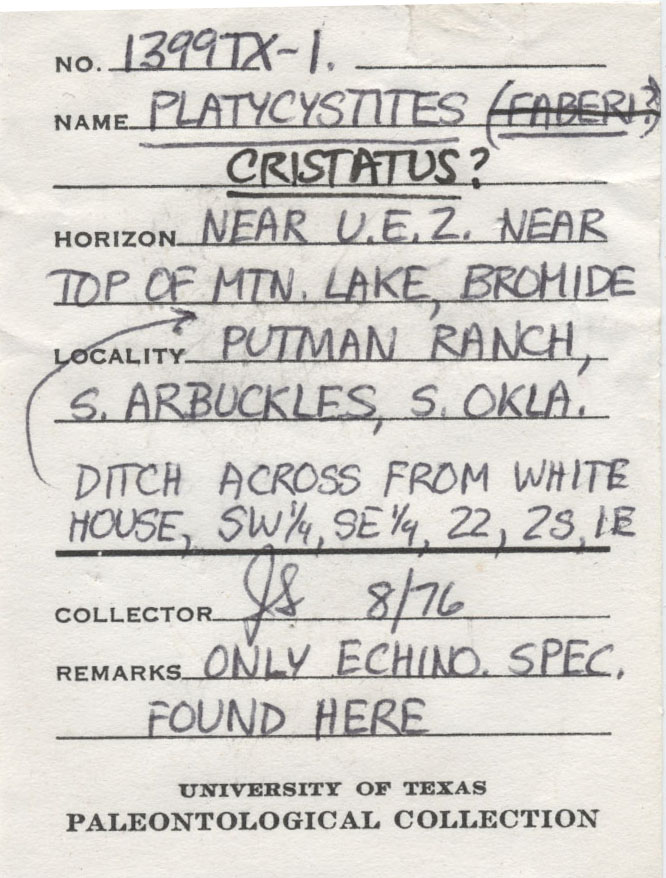 NO. 1399TX-1.
NAME PLATYCYSTITES (FABERI?)
CRISTATUS?
HORIZON NEAR U.E.Z. NEAR
TOP OF MTN. LAKE, BROMIDE
LOCALITY PUTMAN RANCH,
S. ARBUCKLES, S. OKLA.
DITCH ACROSS FROM WHITE
HOUSE, SW 1/4, SE 1/4, 22, 2S, 1E
COLLECTOR JS 8/76
REMARKS ONLY ECHINO. SPEC.
FOUND HERE
UNIVERSITY OF TEXAS
PALEONTOLOGICAL COLLECTION